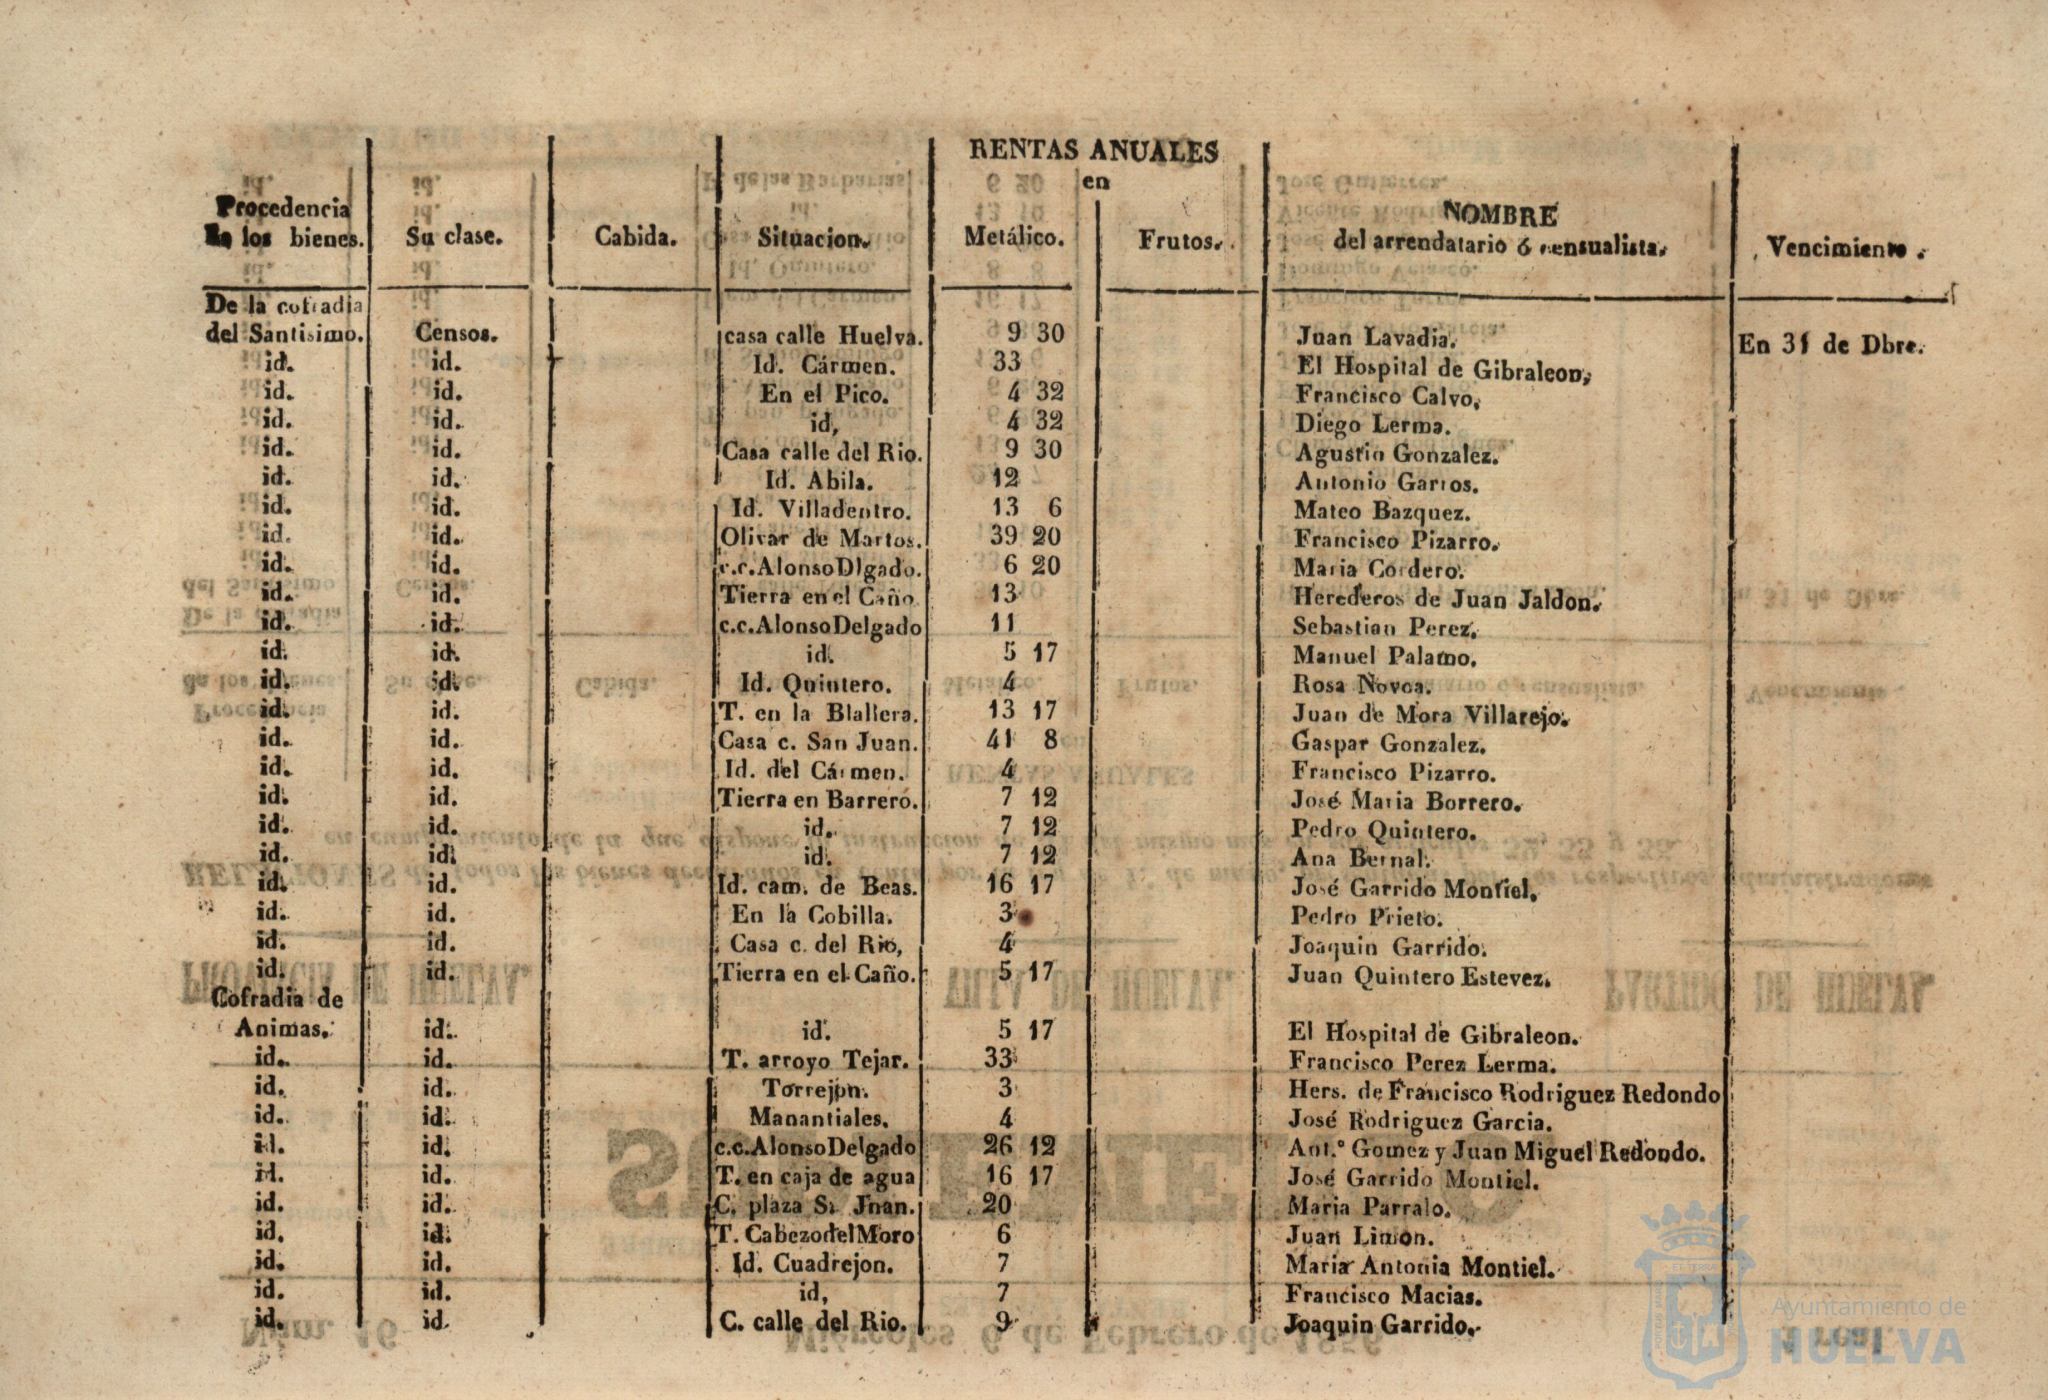 RENTAS ANUALES
en
Procedencia
de los bienes. Su clase. Cabida. Situacion. Metálico. Frutos. NOMBRE
del arrendatario ó censualista. Vencimiento.
De la cofradia
del Santisimo. Censos. casa calle Huelva. 9 30 Juan Lavadia. En 31 de Dbre.
id. id. Id. Cármen. 33 El Hospital de Gibraleon,
id. id. En el Pico. 4 32 Francisco Calvo,
id. id. id, 4 32 Diego Lerma.
id. id. Casa calle del Rio. 9 30 Agustin Gonzalez.
id. id. Id. Abila. 12 Antonio Garros.
id. id. Id. Villadentro. 13 6 Mateo Bazquez.
id. id. Olivar de Martos. 39 20 Francisco Pizarro.
id. id. c.c.Alonso Dlgado. 6 20 Maria Cordero.
id. id. Tierra en el Caño 13 Herederos de Juan Jaldon.
id. id. c.c.Alonso Delgado 11 Sebastian Perez.
id. id. id. 5 17 Manuel Palamo.
id. id. Id. Quintero. 4 Rosa Novoa.
id. id. T. en la Blallera. 13 17 Juan de Mora Villarejo.
id. id. Casa c. San Juan. 41 8 Gaspar Gonzalez.
id. id. Id. del Cármen. 4 Francisco Pizarro.
id. id. Tierra en Barrero. 7 12 José Maria Borrero.
id. id. id. 7 12 Pedro Quintero.
id. id. id. 7 12 Ana Bernal.
id. id. Id. cam. de Beas. 16 17 José Garrido Montiel.
id. id. En la Cobilla. 3 Pedro Prieto.
id. id. Casa c. del Rio, 4 Joaquin Garrido.
id. id. Tierra en el Caño. 5 17 Juan Quintero Estevez.
Cofradia de
Animas. id. id. 5 17 El Hospital de Gibraleon.
id. id. T. arroyo Tejar. 33 Francisco Perez Lerma.
id. id. Torrejon. 3 Hers. de Francisco Rodriguez Redondo
id. id. Manantiales. 4 José Rodriguez Garcia.
id. id. c.c.Alonso Delgado 26 12 Ant.º Gomez y Juan Miguel Redondo.
id. id. T. en caja de agua 16 17 José Garrido Montiel.
id. id. C. plaza S. Jnan. 20 Maria Parralo.
id. id. T. Cabezo del Moro 6 Juan Limon.
id. id. Id. Cuadrejon. 7 Maria Antonia Montiel.
id. id. id, 7 Francisco Macias.
id. id. C. calle del Rio. 9 Joaquin Garrido.
Ayuntamiento de
HUELVA